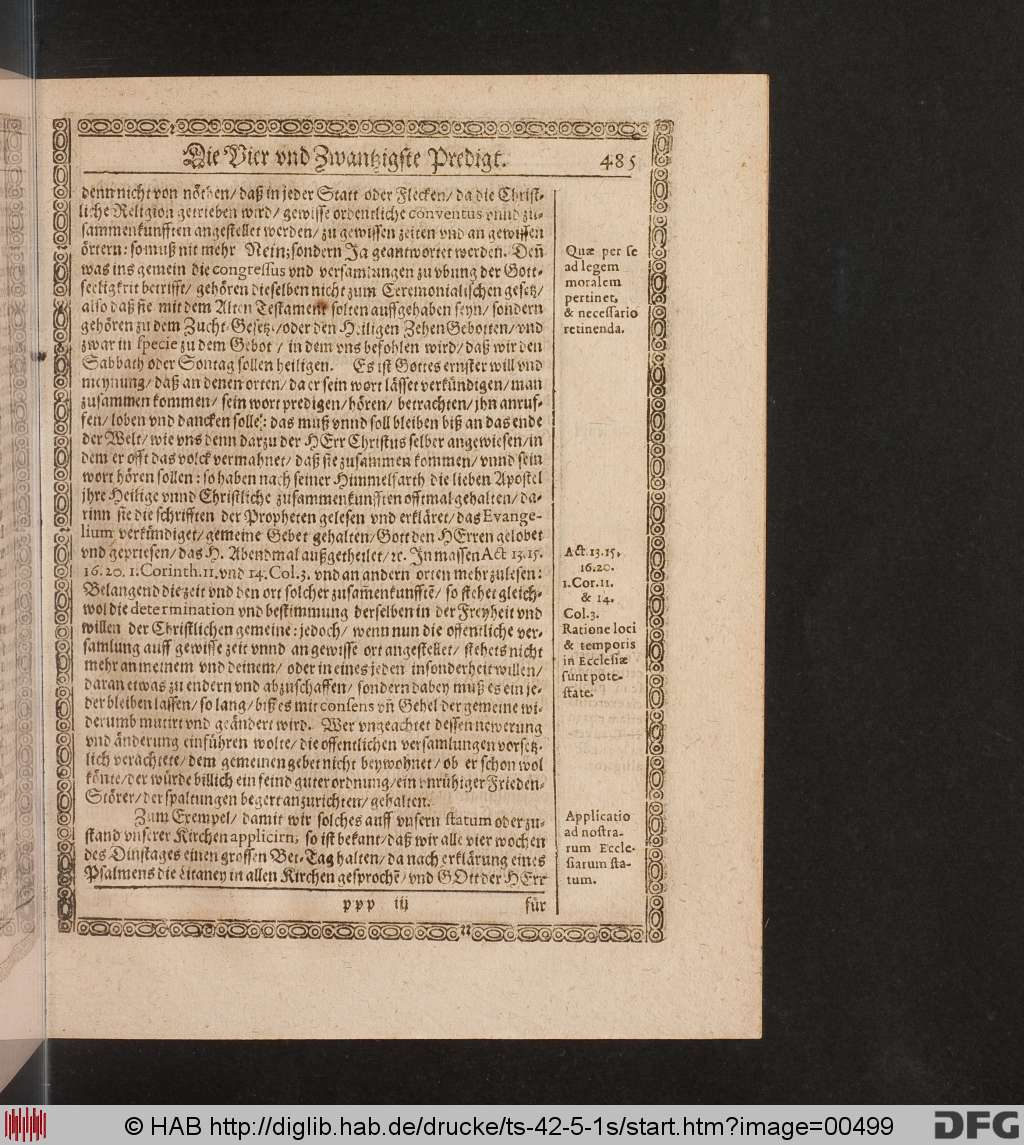 Die Vier vnd Zwantzigste Predigt. 485
denn nicht von nöthen/ daß in jeder Statt oder Flecken/ da die Christ-
liche Religion getrieben wird/ gewisse ordentliche conventus vnnd zu-
sammenkunfften angestellet werden/ zu gewissen zeiten vnd an gewissen
örtern: so muß nit mehr Nein; sondern Ja geantwortet werden. Deñ
was ins gemein die congressus vnd versamlungen zu vbung der Gott-
seeligkeit betrifft/ gehören dieselben nicht zum Ceremonialischen gesetz/
also daß sie mit dem Alten Testament solten auffgehaben seyn/ sondern
gehören zu dem Zucht-Gesetz/ oder den Heiligen Zehen Gebotten/ vnd
zwar in specie zu dem Gebot/ in dem vns befohlen wird/ daß wir den
Sabbath oder Sontag sollen heiligen. Es ist Gottes ernster will vnd
meynung/ daß an denen orten/ da er sein wort lässet verkündigen/ man
zusammen kommen/ sein wort predigen/ hören/ betrachten/ jhn anruf-
fen/ loben vnd dancken solle: das muß vnnd soll bleiben biß an das ende
der Welt/ wie vns denn darzu der HErr Christus selber angewiesen/ in
dem er offt das volck vermahnet/ daß sie zusammen kommen/ vnnd sein
wort hören sollen: so haben nach seiner Himmelfarth die lieben Apostel
jhre Heilige vnnd Christliche zusammenkunfften offtmal gehalten/ da-
rinn sie die schrifften der Propheten gelesen vnd erkläret/ das Evange-
lium verkündiget/ gemeine Gebet gehalten/ Gott den HErren gelobet
vnd gepriesen/ das H. Abendmal außgetheilet/ ꝛc. In massen Act 13.15.
16.20. 1.Corinth.11. vnd 14. Col.3. vnd an andern orten mehr zulesen:
Belangend die zeit vnd den ort solcher zusamenkunfftē/ so stehet gleich-
wol die determination vnd bestimmung derselben in der Freyheit vnd
willen der Christlichen gemeine: jedoch/ wenn nun die offentliche ver-
samlung auff gewisse zeit vnnd an gewisse ort angestellet/ stehets nicht
mehr an meinem vnd deinem/ oder in eines jeden insonderheit willen/
daran etwas zu endern vnd abzuschaffen/ sondern dabey muß es ein je-
der bleiben lassen/ so lang/ biß es mit consens vñ Gehel der gemeine wi-
derumb mutirt vnd geändert wird. Wer vngeachtet dessen newerung
vnd änderung einführen wolte/ die offentlichen versamlungen vorsetz-
lich verachtete/ dem gemeinen gebet nicht beywohnet/ ob er schon wol
könte/ der würde billich ein feind guter ordnung/ ein vnrühiger Frieden-
Störer/ der spaltungen begert anzurichten/ gehalten.
Zum Exempel/ damit wir solches auff vnsern statum oder zu-
stand vnserer Kirchen applicirn; so ist bekant/ daß wir alle vier wochen
des Dinstages einen grossen Bet-Tag halten/ da nach erklärung eines
Psalmens die Litaney in allen Kirchen gesprochē/ vnd GOtt der HErr
ppp iij für
Quæ per se
ad legem
moralem
pertinet,
& necessario
retinenda.
Act. 13.15.
16.20.
1.Cor.11.
& 14.
Col.3.
Ratione loci
& temporis
in Ecclesiæ
sunt pote-
state.
Applicatio
ad nostra-
rum Eccle-
siarum sta-
tum.
© HAB http://diglib.hab.de/drucke/ts-42-5-1s/start.htm?image=00499
DFG